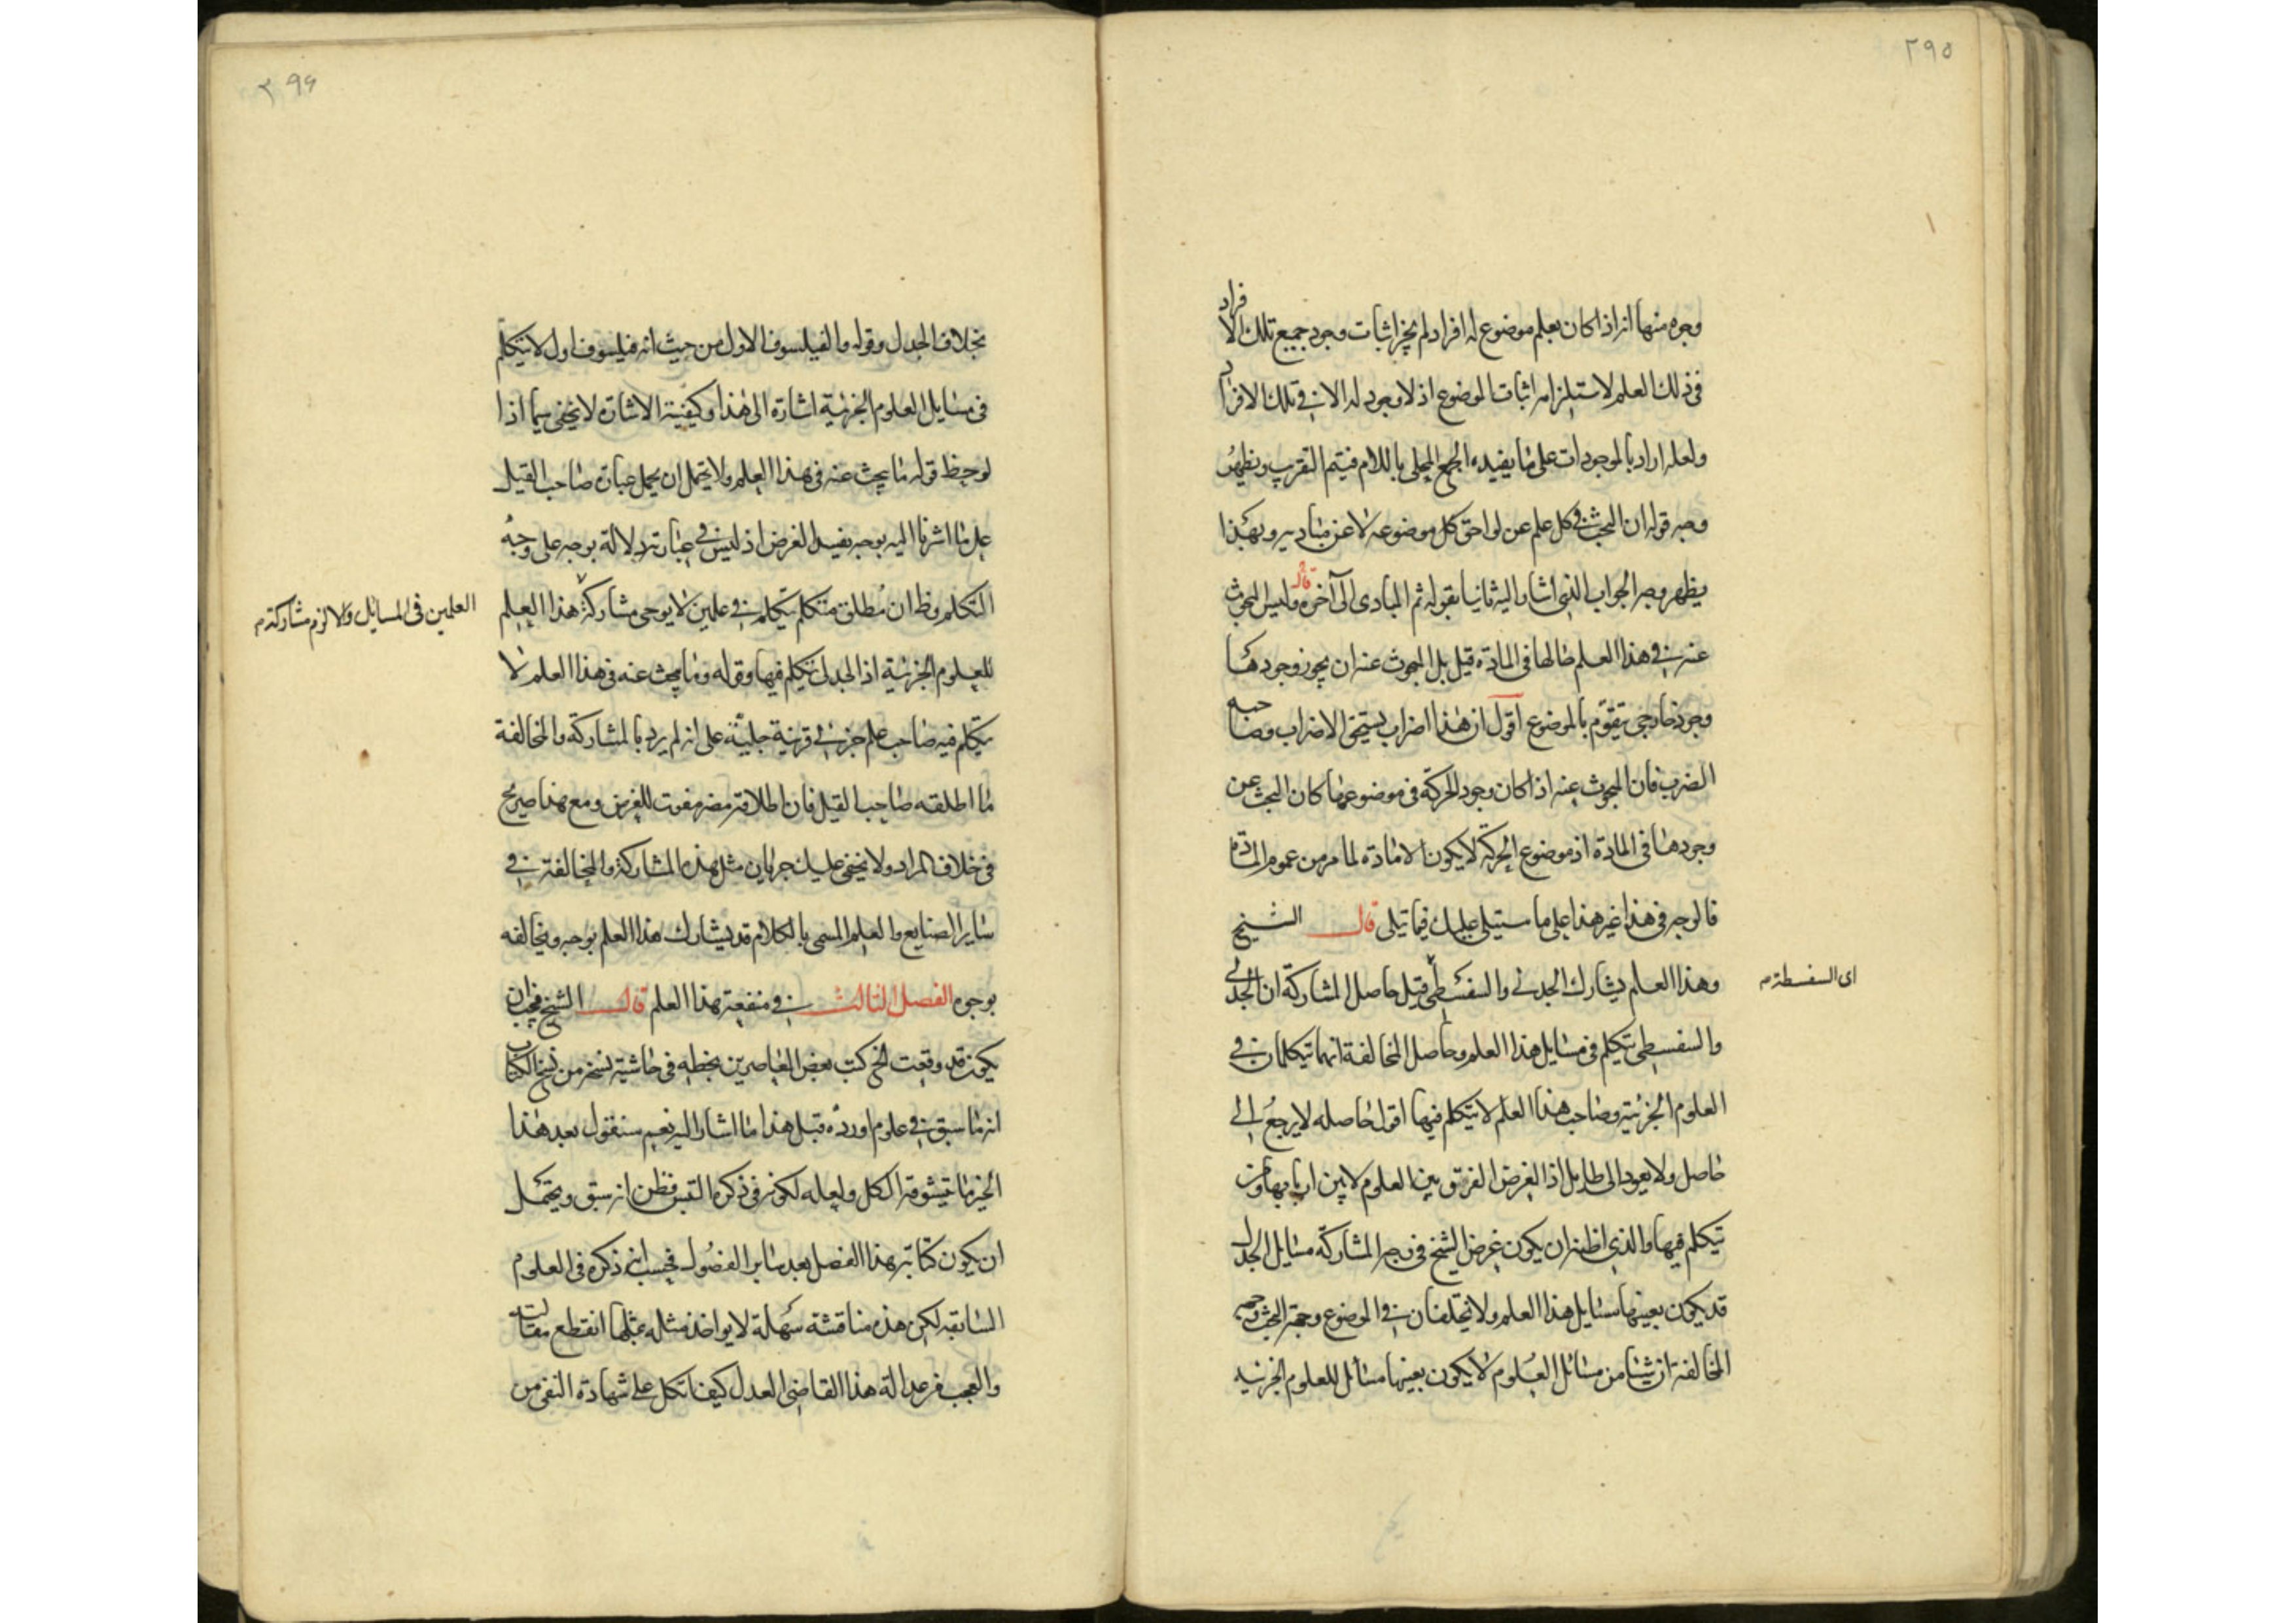 ٢٩٥
وجوه منها انه اذا كان بعلم موضوع له افراد لم يجز اثبات وجود جميع تلك الافراد
فى ذلك العلم لاستلزامه اثبات الموضوع اذ لا وجود له الا فى تلك الافراد
ولعله اراد بالموجودات على ما يفيده الجمع المحلى باللام فيتم التقريب ويظهر
وجه قوله ان البحث فى كل علم عن لواحق كل موضوعه لا عن مباديه وبهذا
يظهر وجه الجواب الذى اشار اليه ثانيا بقوله ثم المبادى الى آخره قال وليس المبحوث
عنه فى هذا العلم حالها فى المادة قيل بل المبحوث عنه ان يجوز وجودها
وجود خارجى يتقوم بالموضوع اقول ان هذا اضراب يستحق الاضراب وصاحبه
الضرب فان المبحوث عنه اذا كان وجود الحركة فى موضوع ما كان البحث عن
وجودها فى المادة اذ موضوع الحركة لا يكون الا مادة لما مر من عموم المادة
فالوجه فى هذا غير هذا على ما سيتلى عليك فيما تيلى قال الشيخ
وهذا العلم يشارك الجدل والسفسطى قيل حاصل المشاركة ان الجدلى
اى السفسطة م
والسفسطى يتكلم فى مسايل هذا العلم وحاصل المخالفة انهما يتكلمان فى
العلوم الجزئية وصاحب هذا العلم لا يتكلم فيها اقول حاصله لا يرجع الى
حاصل ولا يعود الى طايل اذ الغرض الفرق بين العلوم لا بين اربابها ومن
يتكلم فيها والذى اظنه ان يكون غرض الشيخ فى وجه المشاركة مسايل الجدل
قد يكون بعينها مسايل هذا العلم ولا يختلفان فى الموضوع وجهة البحث وجهة
المخالفة ان شيئا من مسائل العلوم لا يكون بعينها مسائل للعلوم الجزئيه
٢٩۶
بخلاف الجدل وقوله والفيلسوف الاول من حيث انه فيلسوف اول لا يتكلم
فى مسايل العلوم الجزئية اشارة الى هذا وكيفية الاشارة لا يخفى سيما اذا
لوحظ قوله ما يبحث عنه فى هذا العلم ولا يحتمل ان يحمل عبارة صاحب القيل
على ما اشرنا اليه بوجه يفيد الغرض اذ ليس فى عبارته دلالة بوجه على وجه
التكلم وظ ان مطلق متكلم يتكلم فى علمين لا يوجب مشاركة هذا العلم
العلمين فى المسائل والا لزم مشاركة م
للعلوم الجزئية اذ الجدلى يتكلم فيها وقوله وما يبحث عنه فى هذا العلم لا
يتكلم فيه صاحب علم جزئى قرينة جليّة على انه لم يرد بالمشاركة والمخالفة
ما اطلقه صاحب القيل فان اطلاقه مضر مفوت للغرض ومع هذا صريح
فى خلاف المراد ولا يخفى عليك جريان مثل هذه المشاركة والمخالفة فى
ساير الصنايع والعلم المسمى بالكلام قد يشارك هذا العلم بوجه ويخالفه
بوجوه الفصل الثالث فى منفعة هذا العلم قال الشيخ فيجب ان
يكون قد وقعت الخ كتب بعض المعاصرين بخطه فى حاشية نسخه من نسخ الكتاب
انه ما سبق فى علوم اورده قبل هذا ما اشار اليه نعم سنقول بعد هذا
الخير ما يتشوقه الكل ولعله لكونه فى ذكره التبس فظن انه سبق ويحتمل
ان يكون كتابة هذا الفصل بعد ساير الفصول فحسب انه ذكره فى العلوم
السابقه لكن هذه مناقشة سهلة لا يواخذ مثله بمثلها انقطع مقالته
والعجب من عدالة هذا القاضى العدل كيف اتكل على شهادة النفى من